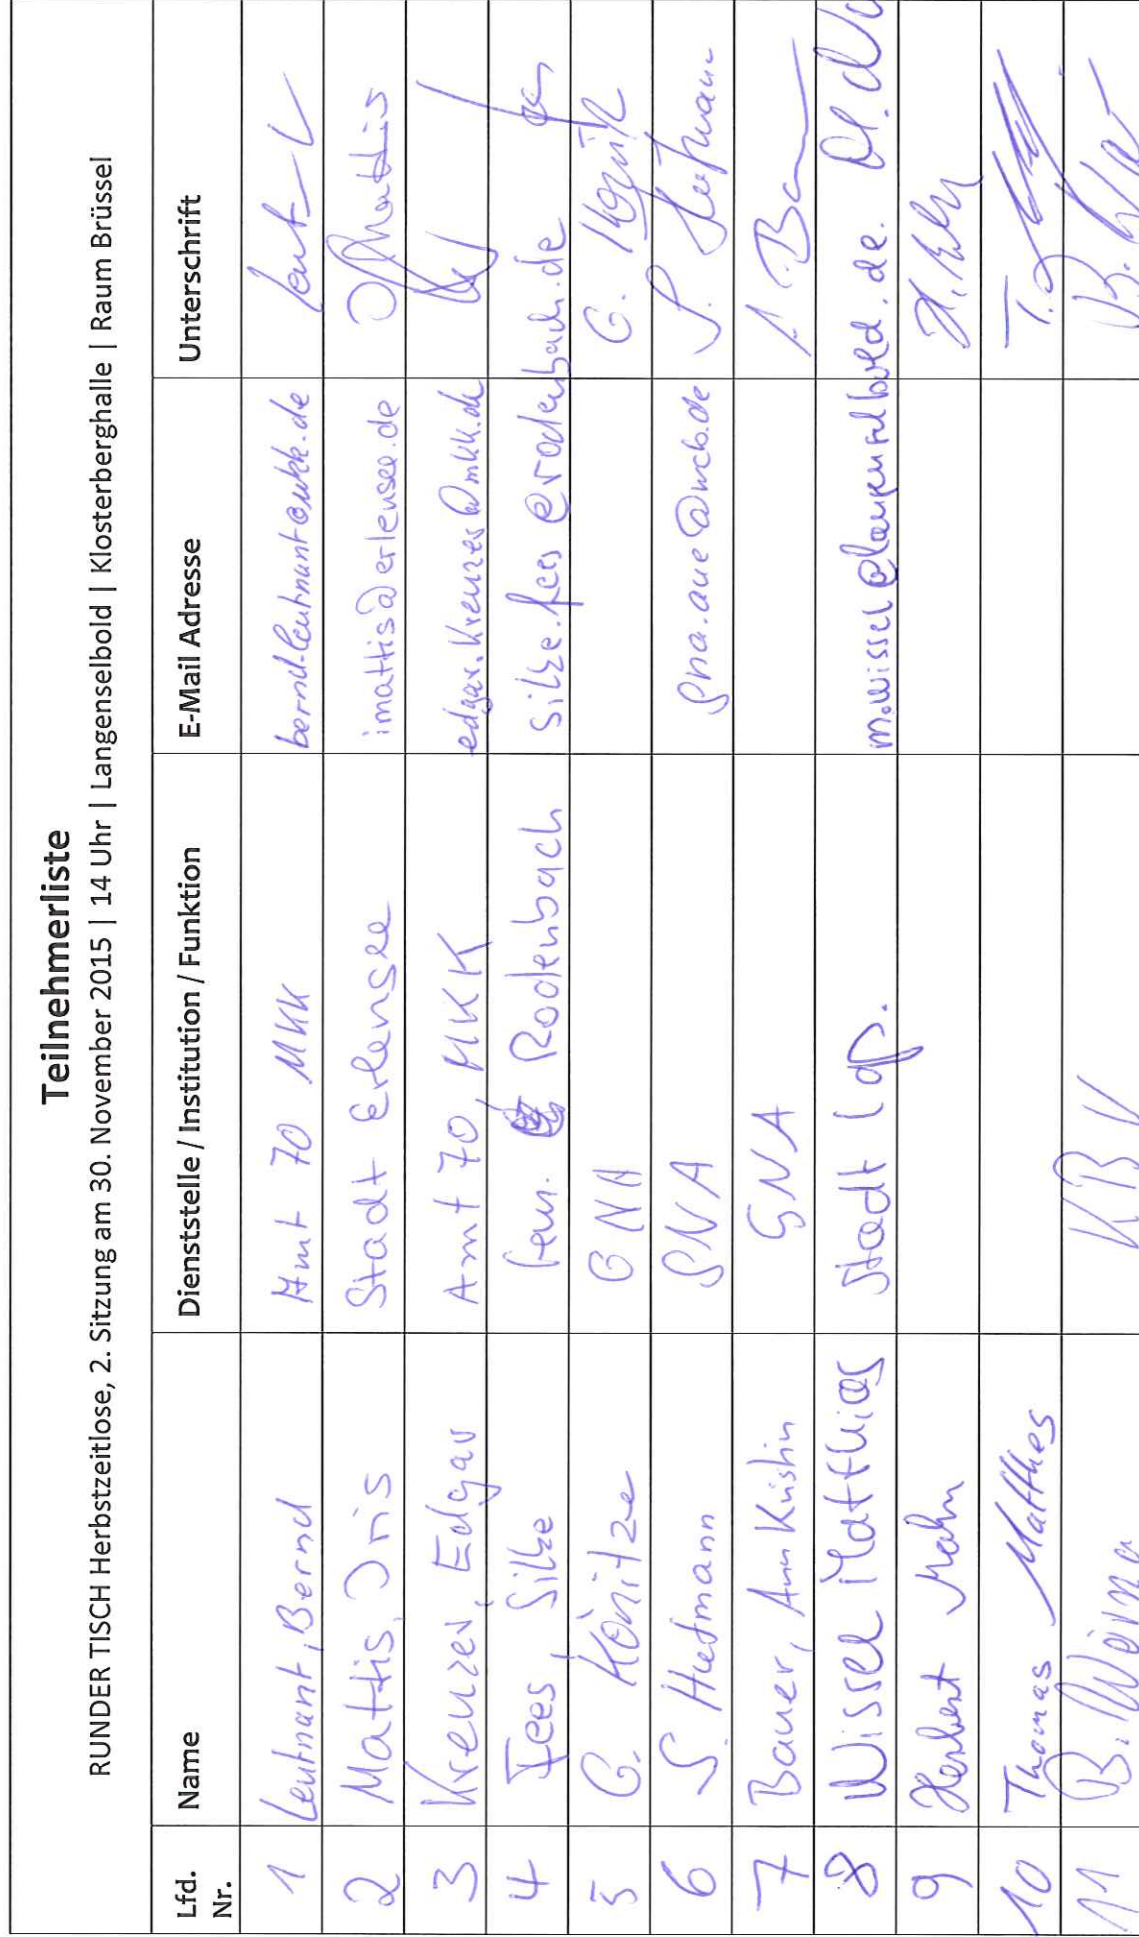 Teilnehmerliste
RUNDER TISCH Herbstzeitlose, 2. Sitzung am 30. November 2015 | 14 Uhr | Langenselbold | Klosterberghalle | Raum Brüssel
Lfd. Nr. Name Dienststelle / Institution / Funktion E-Mail Adresse Unterschrift
1 Leutnant, Bernd Amt 70 MKK bernd.leutnant@mkk.de
2 Mattis, Iris Stadt Erlensee imattis@erlensee.de Mattis
3 Kreuzer, Edgar Amt 70, MKK edgar.kreuzer@mkk.de
4 Fees, Silke Gem. Rodenbach silke.fees@rodenbach.de
5 G. Könitze GNA G.
6 S. Hufmann GNA gna.aue@web.de S. Hufmann
7 Bauer, Ann Kristin GNA
8 Wissel Matthias Stadt Lgs. m.wissel@langenselbold.de.
9 Herbert Mahn
10 Thomas Matthes T.
11 B. KBV B.